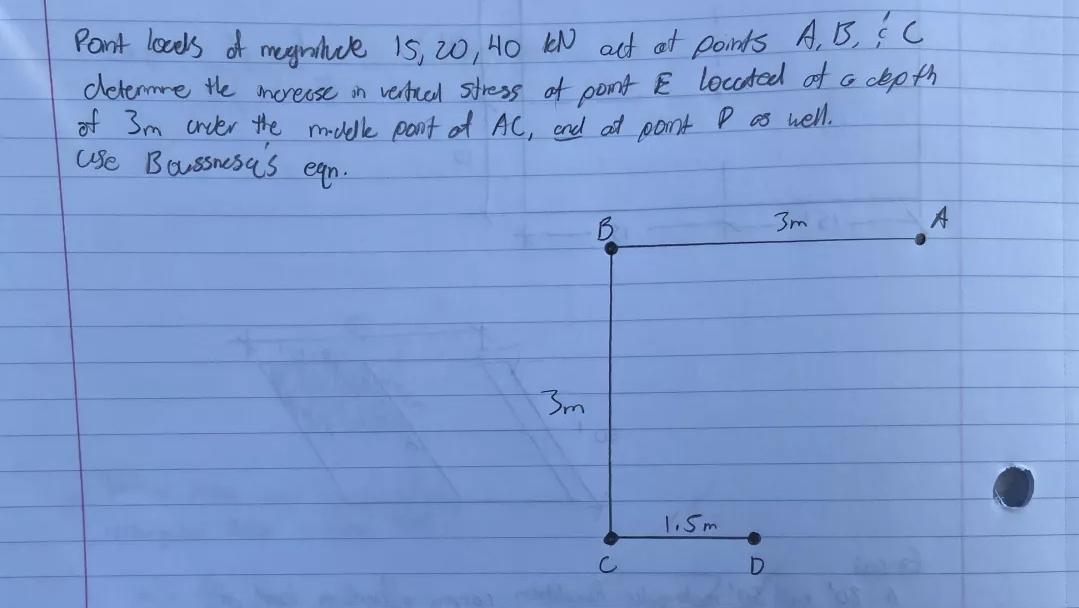 Point loads of magnitude 15, 20, 40 kN act at points A, B, & C
determine the increase in vertical stress at point E located at a depth
of 3m under the middle point of AC, and at point D as well.
use Boussnesq's eqn.
B
3m
A
3m
1.5m
C
D